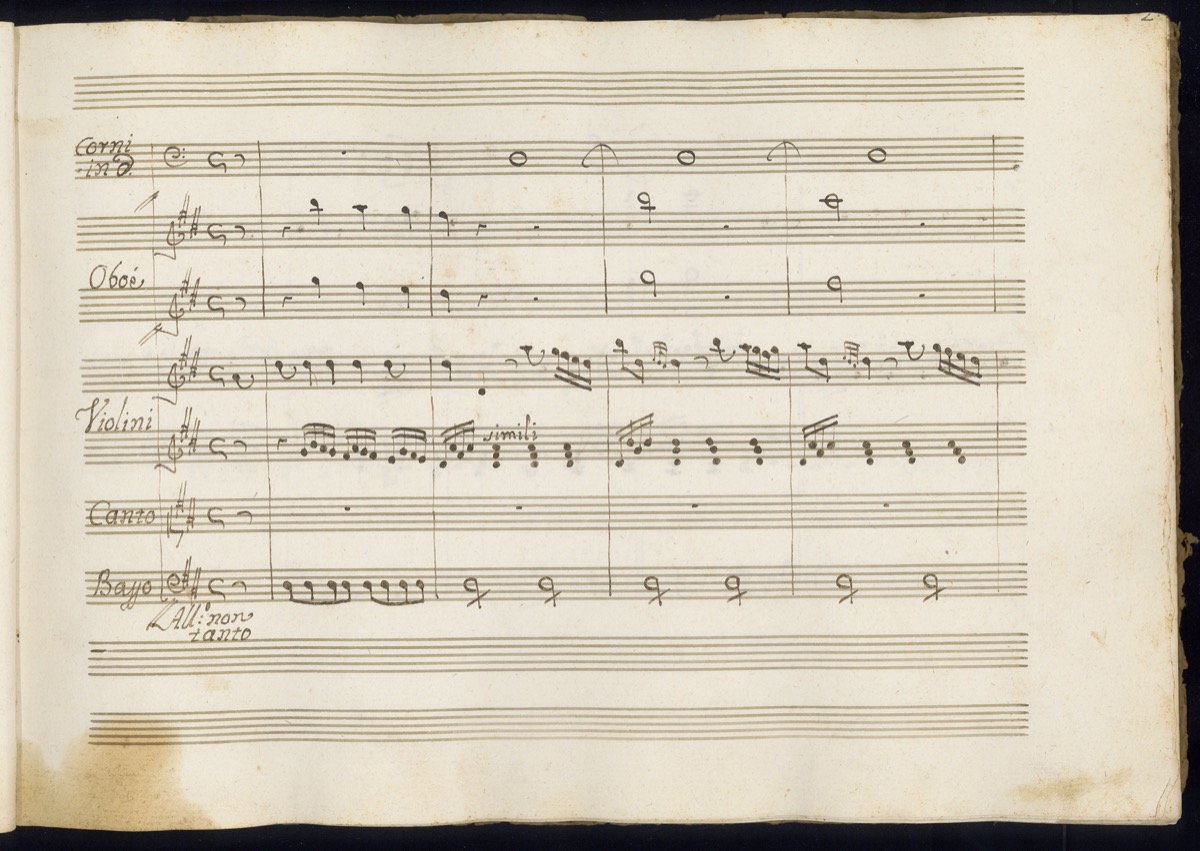 2
Corni
in D.
Oboé
Violini
simili
Canto
Basso
All:º non
tanto